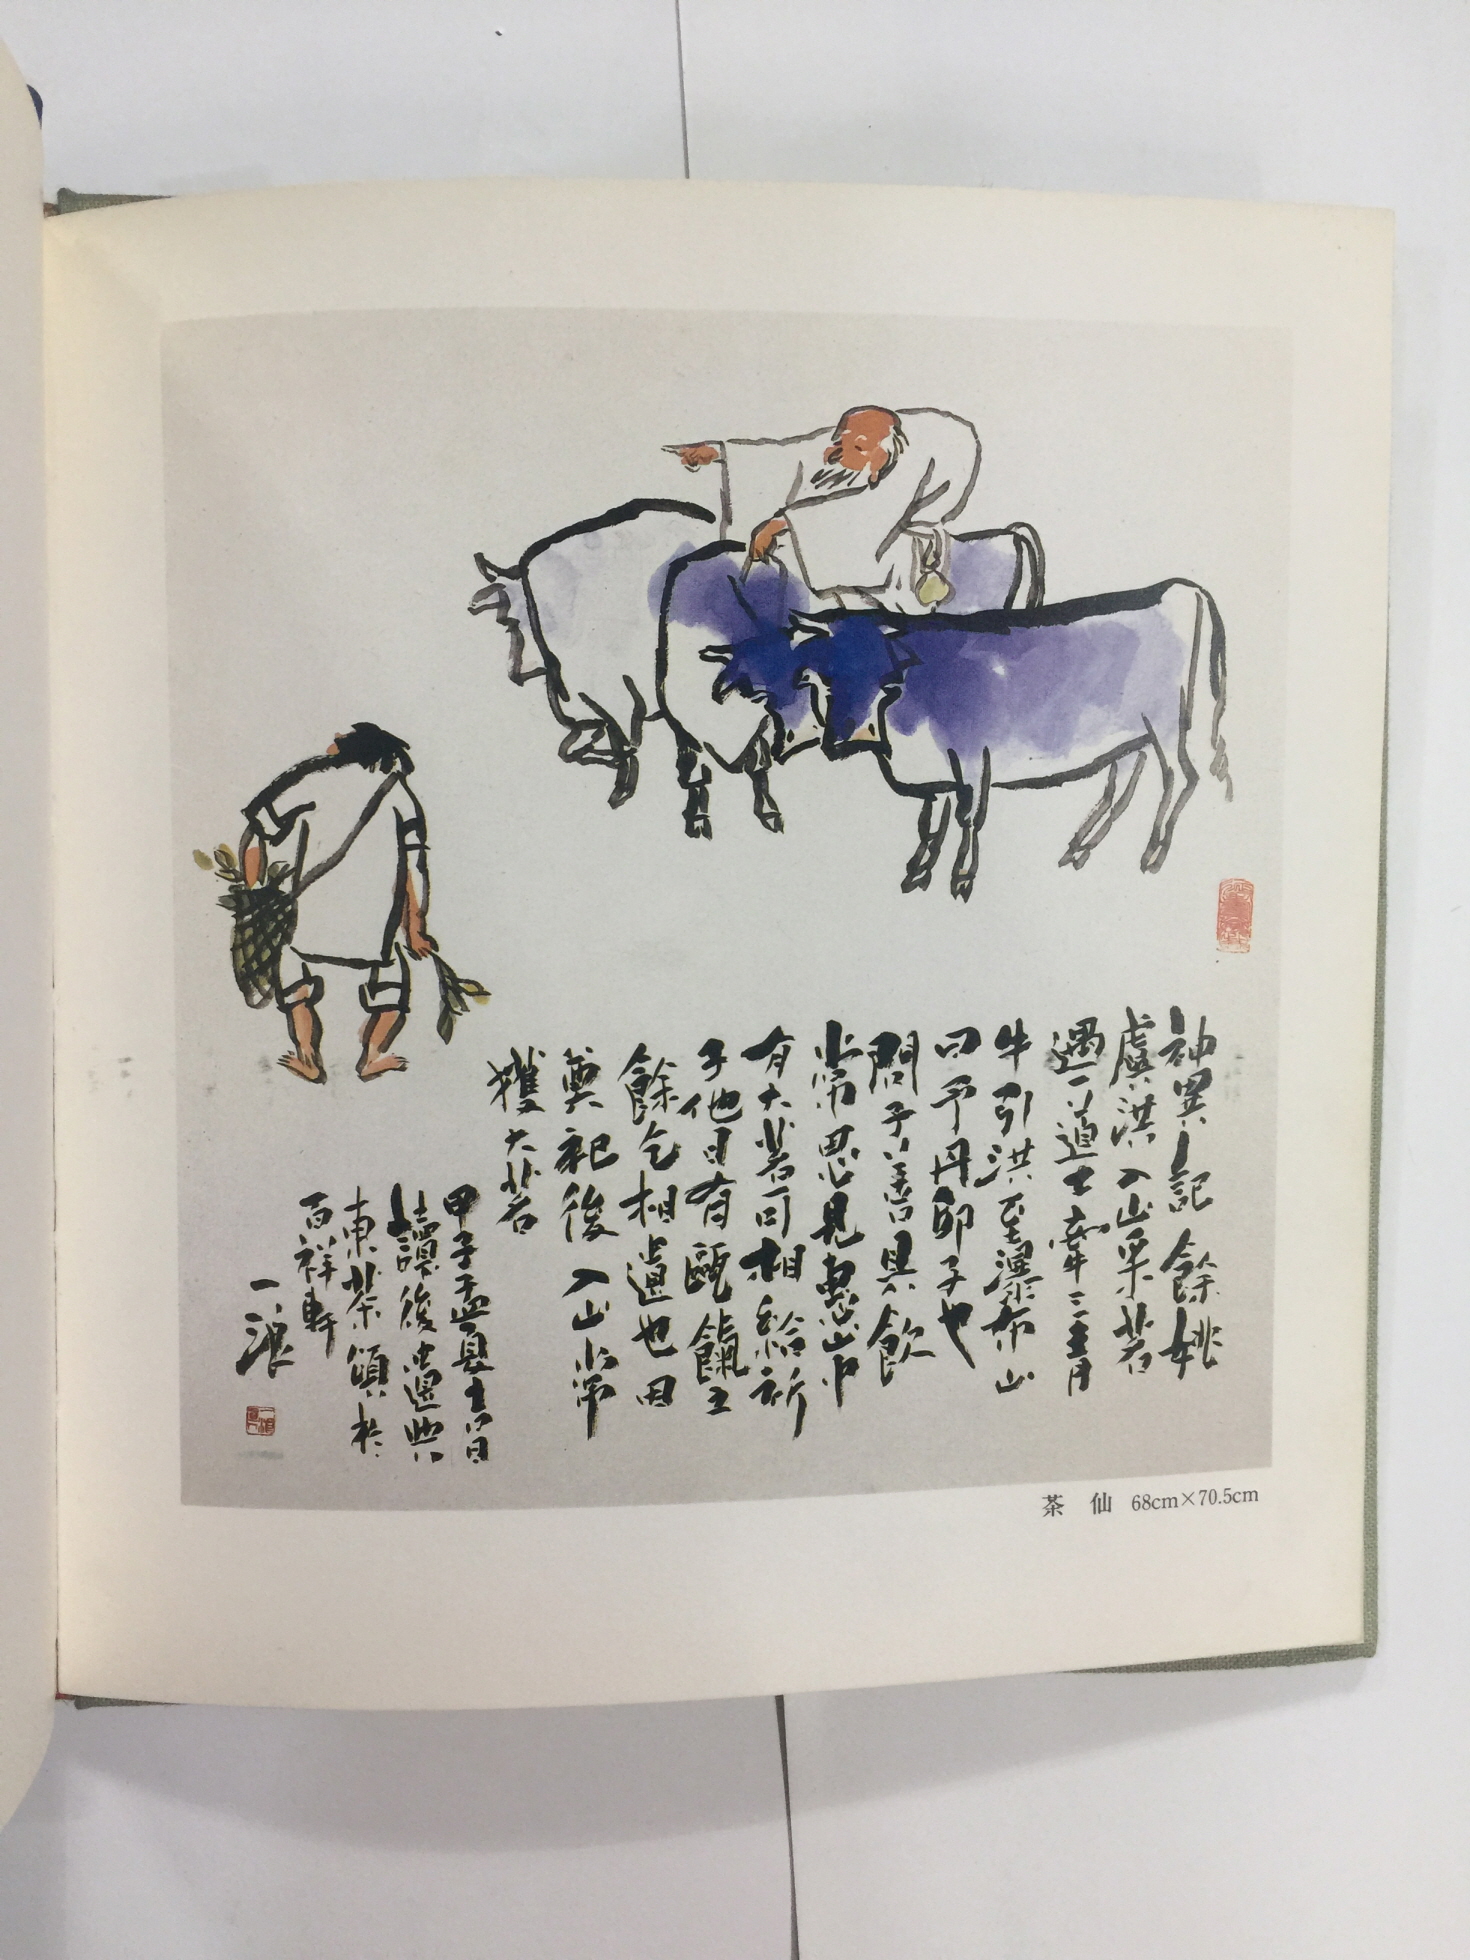 神異記餘姚
虞洪入山采茗
遇一道士牽三青
牛引洪至瀑布山
曰予丹邱子也
聞子善具飲
常思見惠山中
有大茗可相給祈
子他日有甌餼之
餘乞相遺也因
奠祀後入山常
獲大茗
甲子孟夏日
讀後
東茶頌於
百祥軒
一浪
茶 仙 68cm×70.5cm